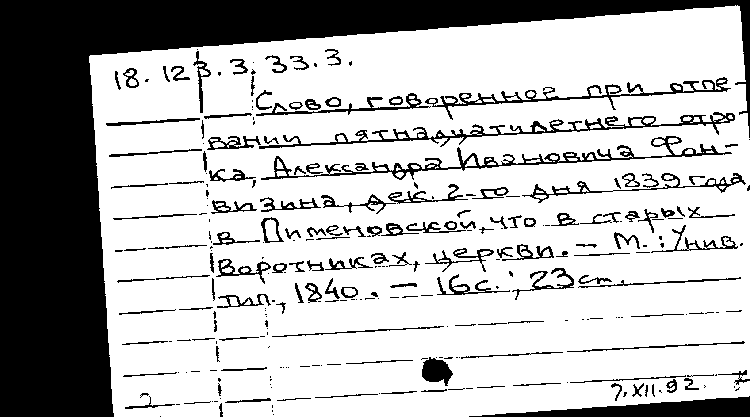 18.123.3.33.3.
Слово, говоренное при отпе-
вании пятнадцатилетнего отро-
ка, Александра Ивановича Фон-
визина, дек. 2-го дня 1839 года,
в Пименовской, что в старых
Воротниках, церкви. – М. : Унив.
тип., 1840. – 16 с. ; 23 см.
2
7.XII.92.